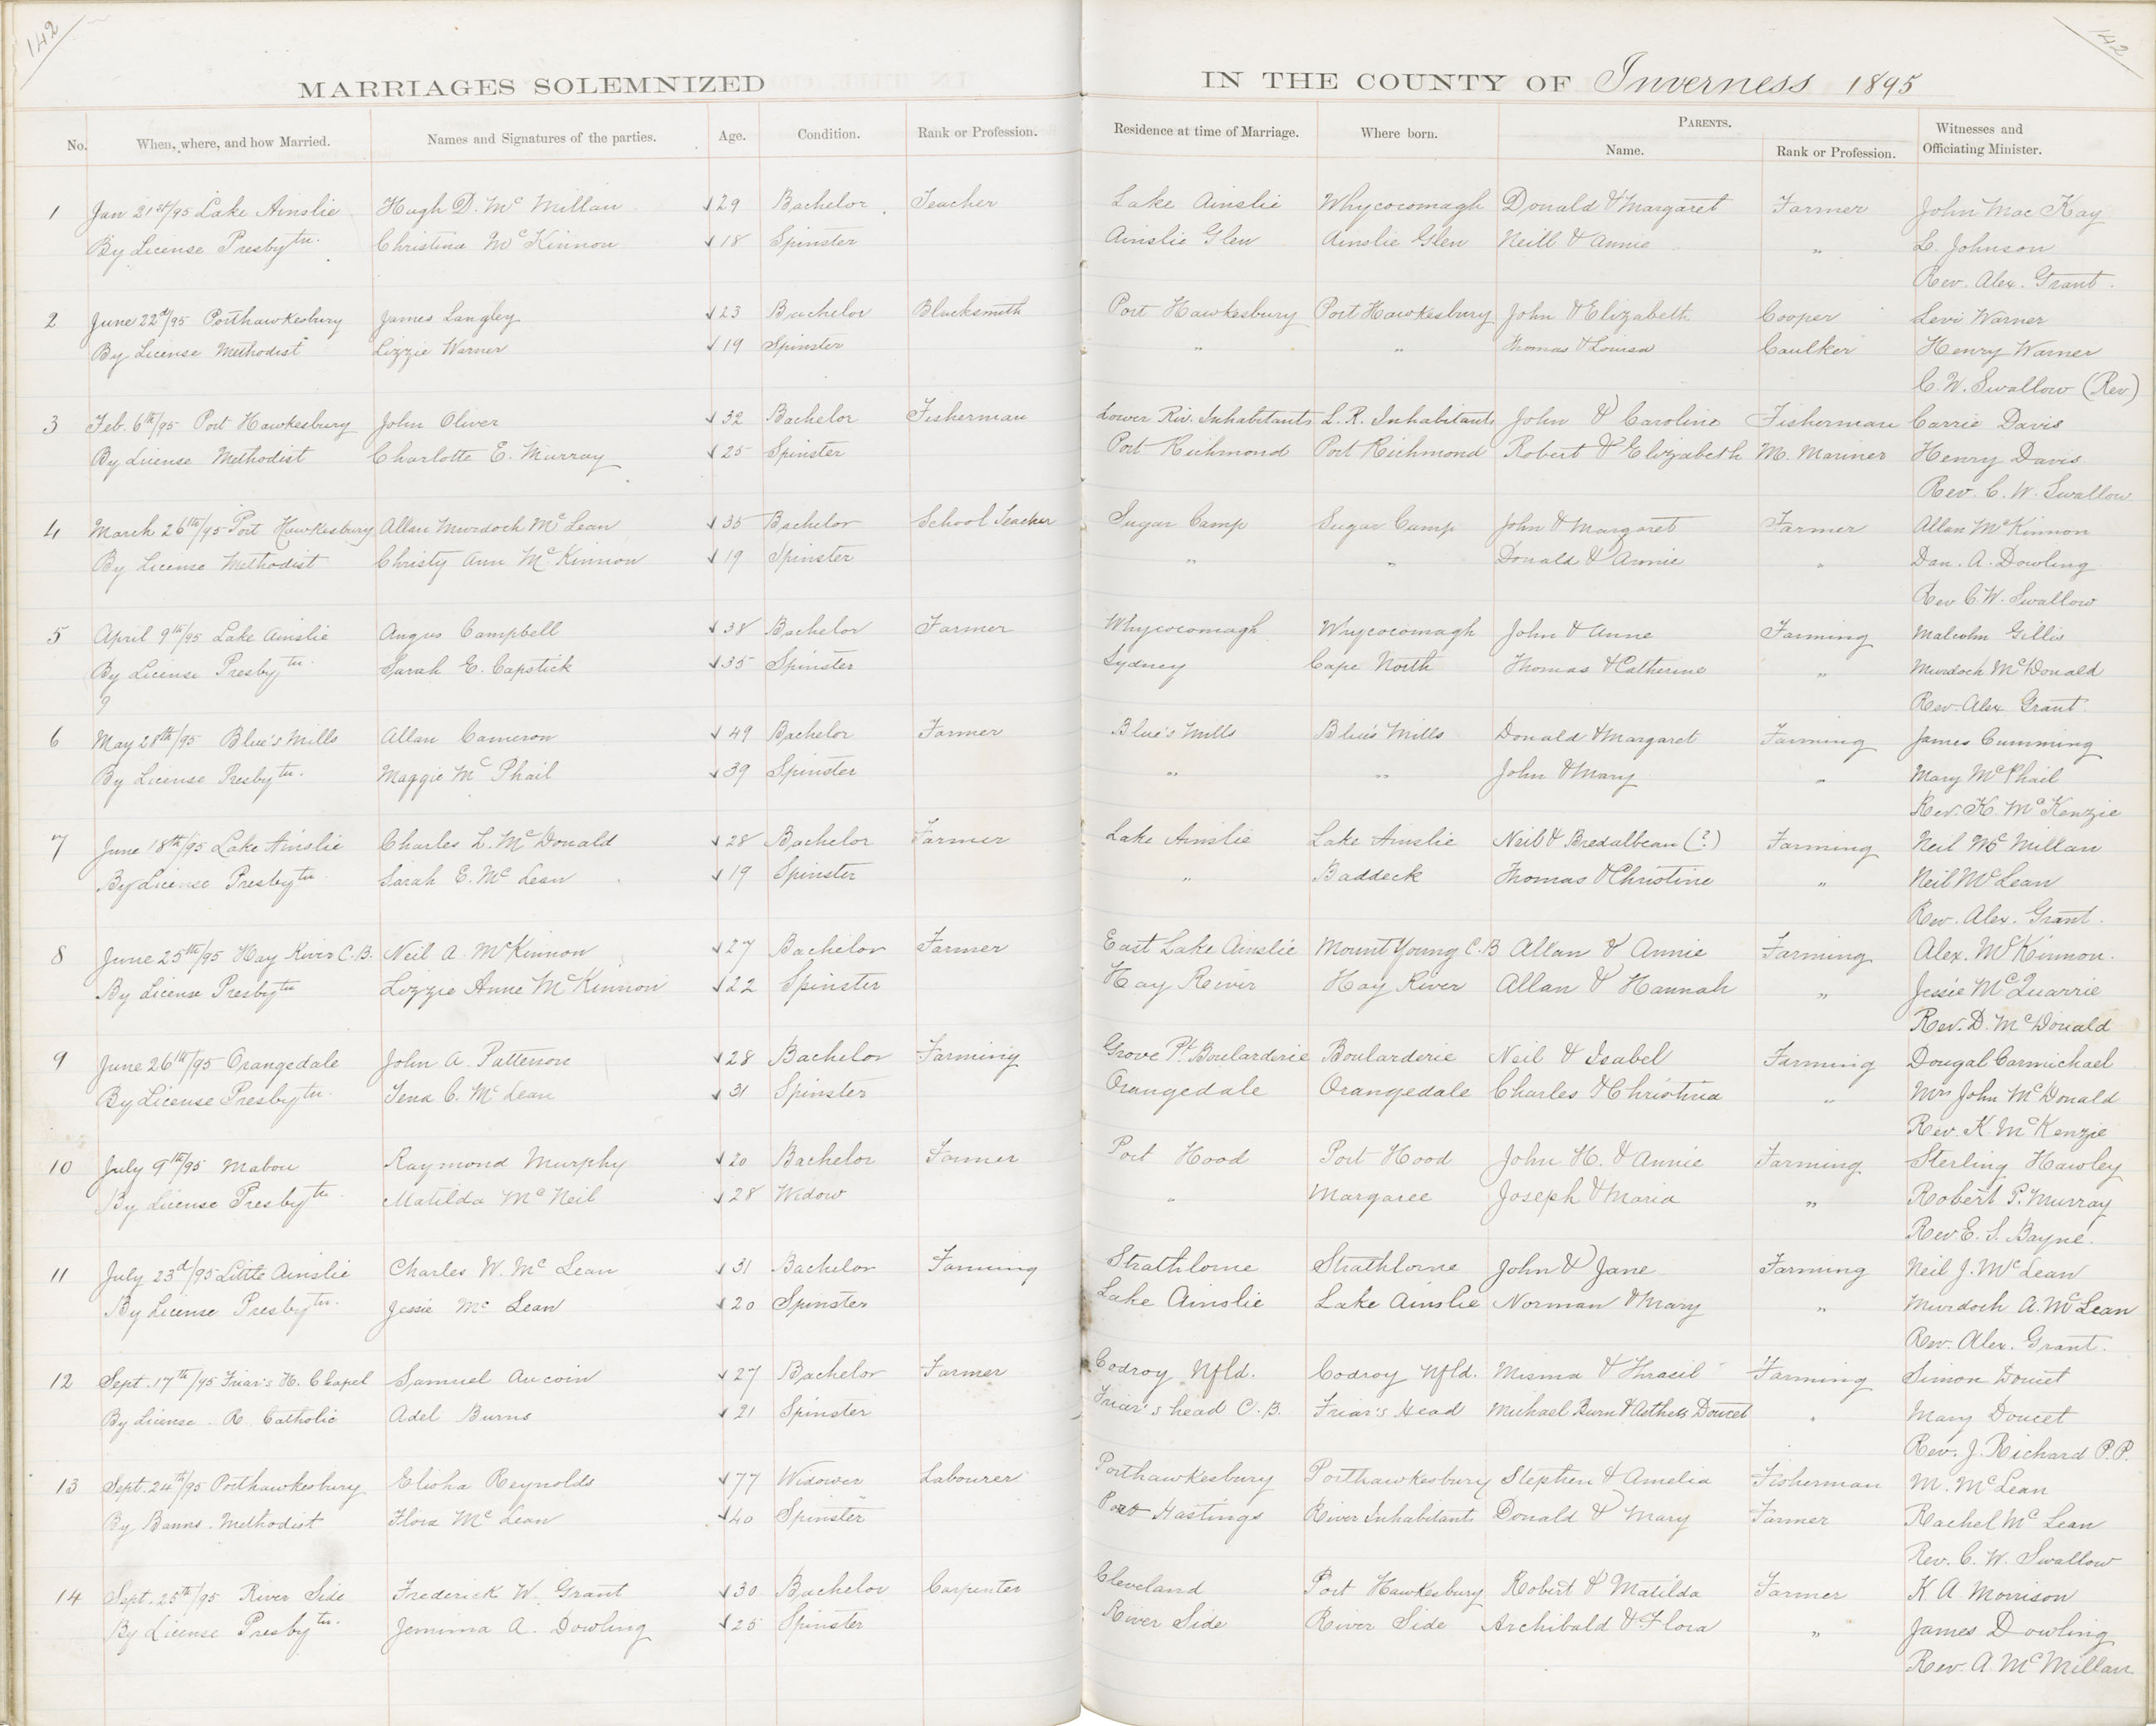 142
142
MARRIAGES SOLEMNIZED IN THE COUNTY OF Inverness 1895
No. When, where, and how Married. Names and Signatures of the parties. Age. Condition. Rank or Profession. Residence at time of Marriage. Where born. PARENTS. Name. Rank or Profession. Witnesses and Officiating Minister.
1 Jan 21st/95 Lake Ainslie Hugh D. Mc Millan √29 Bachelor Teacher Lake Ainslie Whycocomagh Donald & Margaret Farmer John Mac Kay
By License Presbytn. Christina Mc Kinnon √18 Spinster Ainslie Glen Ainslie Glen Neill & Annie " L. Johnson
Rev. Alex. Grant.
2 June 22d/95 Porthawkesbury James Langley √23 Bachelor Blacksmith Port Hawkesbury Port Hawkesbury John & Elizabeth Cooper Levi Warner
By License Methodist Lizzie Warner √19 Spinster " " Thomas & Louisa Caulker Henry Warner
C. W. Swallow (Rev)
3 Feb. 6th/95 Port Hawkesbury John Oliver √32 Bachelor Fisherman Lower Riv. Inhabitants L. R. Inhabitants John & Caroline Fisherman Carrie Davis
By License Methodist Charlotte E. Murray √25 Spinster Port Richmond Port Richmond Robert & Elizabeth M. Mariner Henry Davis
Rev. C. W. Swallow
4 March 26th/95 Port Hawkesbury Allan Murdoch Mc Lean √35 Bachelor School Teacher Sugar Camp Sugar Camp John & Margaret Farmer Allan McKinnon
By License Methodist Christy Ann Mc Kinnon √19 Spinster " " Donald & Annie " Dan. A. Dowling
Rev C. W. Swallow
5 April 9th/95 Lake Ainslie Angus Campbell √38 Bachelor Farmer Whycocomagh Whycocomagh John & Anne Farming Malcolm Gillis
By License Presbytn. Sarah E. Capstick √35 Spinster Sydney Cape North Thomas & Catherine " Murdoch McDonald
Rev. Alex Grant
6 May 28th/95 Blue's Mills Allan Cameron √49 Bachelor Farmer Blue's Mills Blue's Mills Donald & Margaret Farming James Cumming
By License Presbytn. Maggie Mc Phail √39 Spinster " " John & Mary " Mary McPhail
Rev. K. McKenzie
7 June 18th/95 Lake Ainslie Charles L. Mc Donald √28 Bachelor Farmer Lake Ainslie Lake Ainslie Neil & Bredalbean (?) Farming Neil Mc Millan
By License Presbytn Sarah E. Mc Lean √19 Spinster " Baddeck Thomas & Christine " Neil McLean
Rev. Alex. Grant.
8 June 25th/95 Hay River C.B. Neil A. McKinnon √27 Bachelor Farmer East Lake Ainslie Mount Young C.B Allan & Annie Farming Alex. McKinnon.
By License Presbytn Lizzie Anne McKinnon √22 Spinster Hay River Hay River Allan & Hannah " Jessie McQuarrie
Rev. D. McDonald
9 June 26th/95 Orangedale John A. Patterson √28 Bachelor Farming Grove Pt. Boularderie Boularderie Neil & Isabel Farming Dougal Carmichael
By License Presbytn. Tena C. Mc Lean √31 Spinster Orangedale Orangedale Charles & Christina " Mrs John McDonald
Rev. K. McKenzie
10 July 9th/95 Mabou Raymond Murphy √20 Bachelor Farmer Port Hood Port Hood John H. & Annie Farming Sterling Hawley
By License Presbytn. Matilda McNeil √28 Widow " Margaree Joseph & Maria " Robert P. Murray
Rev E. S. Bayne.
11 July 23d/95 Little Ainslie Charles W. Mc Lean √31 Bachelor Farming Strathlorne Strathlorne John & Jane Farming Neil J. McLean
By License Presbytn. Jessie Mc Lean √20 Spinster Lake Ainslie Lake Ainslie Norman & Mary " Murdoch A. McLean
Rev. Alex. Grant.
12 Sept. 17th/95 Friar's H. Chapel Samuel Aucoin √27 Bachelor Farmer Codroy Nfld. Codroy Nfld. Misma & Thrasil Farming Simon Doucet
By License R. Catholic Adel Burns √21 Spinster Friar's head C.B. Friar's Head Michael Burn & Doucet " Mary Doucet
Rev. J. Richard P.P.
13 Sept. 24th/95 Porthawkesbury Elisha Reynolds √77 Widower Labourer Porthawkesbury Porthawkesbury Stephen & Amelia Fisherman M. McLean
By Banns. Methodist Flora Mc Lean √40 Spinster Port Hastings River Inhabitants Donald & Mary Farmer Rachel Mc Lean
Rev. C. W. Swallow
14 Sept. 25th/95 River Side Frederick W. Grant √30 Bachelor Carpenter Cleveland Port Hawkesbury Robert & Matilda Farmer K. A Morrison
By License Presbytn. Jemima A. Dowling √25 Spinster River Side River Side Archibald & Flora " James Dowling
Rev. A. McMillan